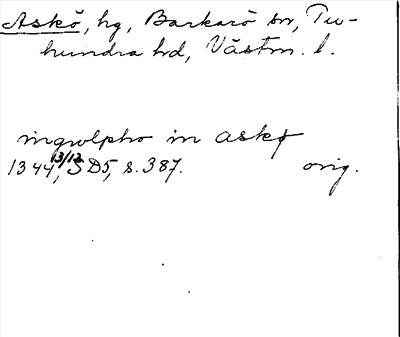 Askö, hg, Barkarö sn, Tu-
hundra hd, Västm. l.
ingwlpho in askø
1344 13/12, SD5, s. 387. orig.